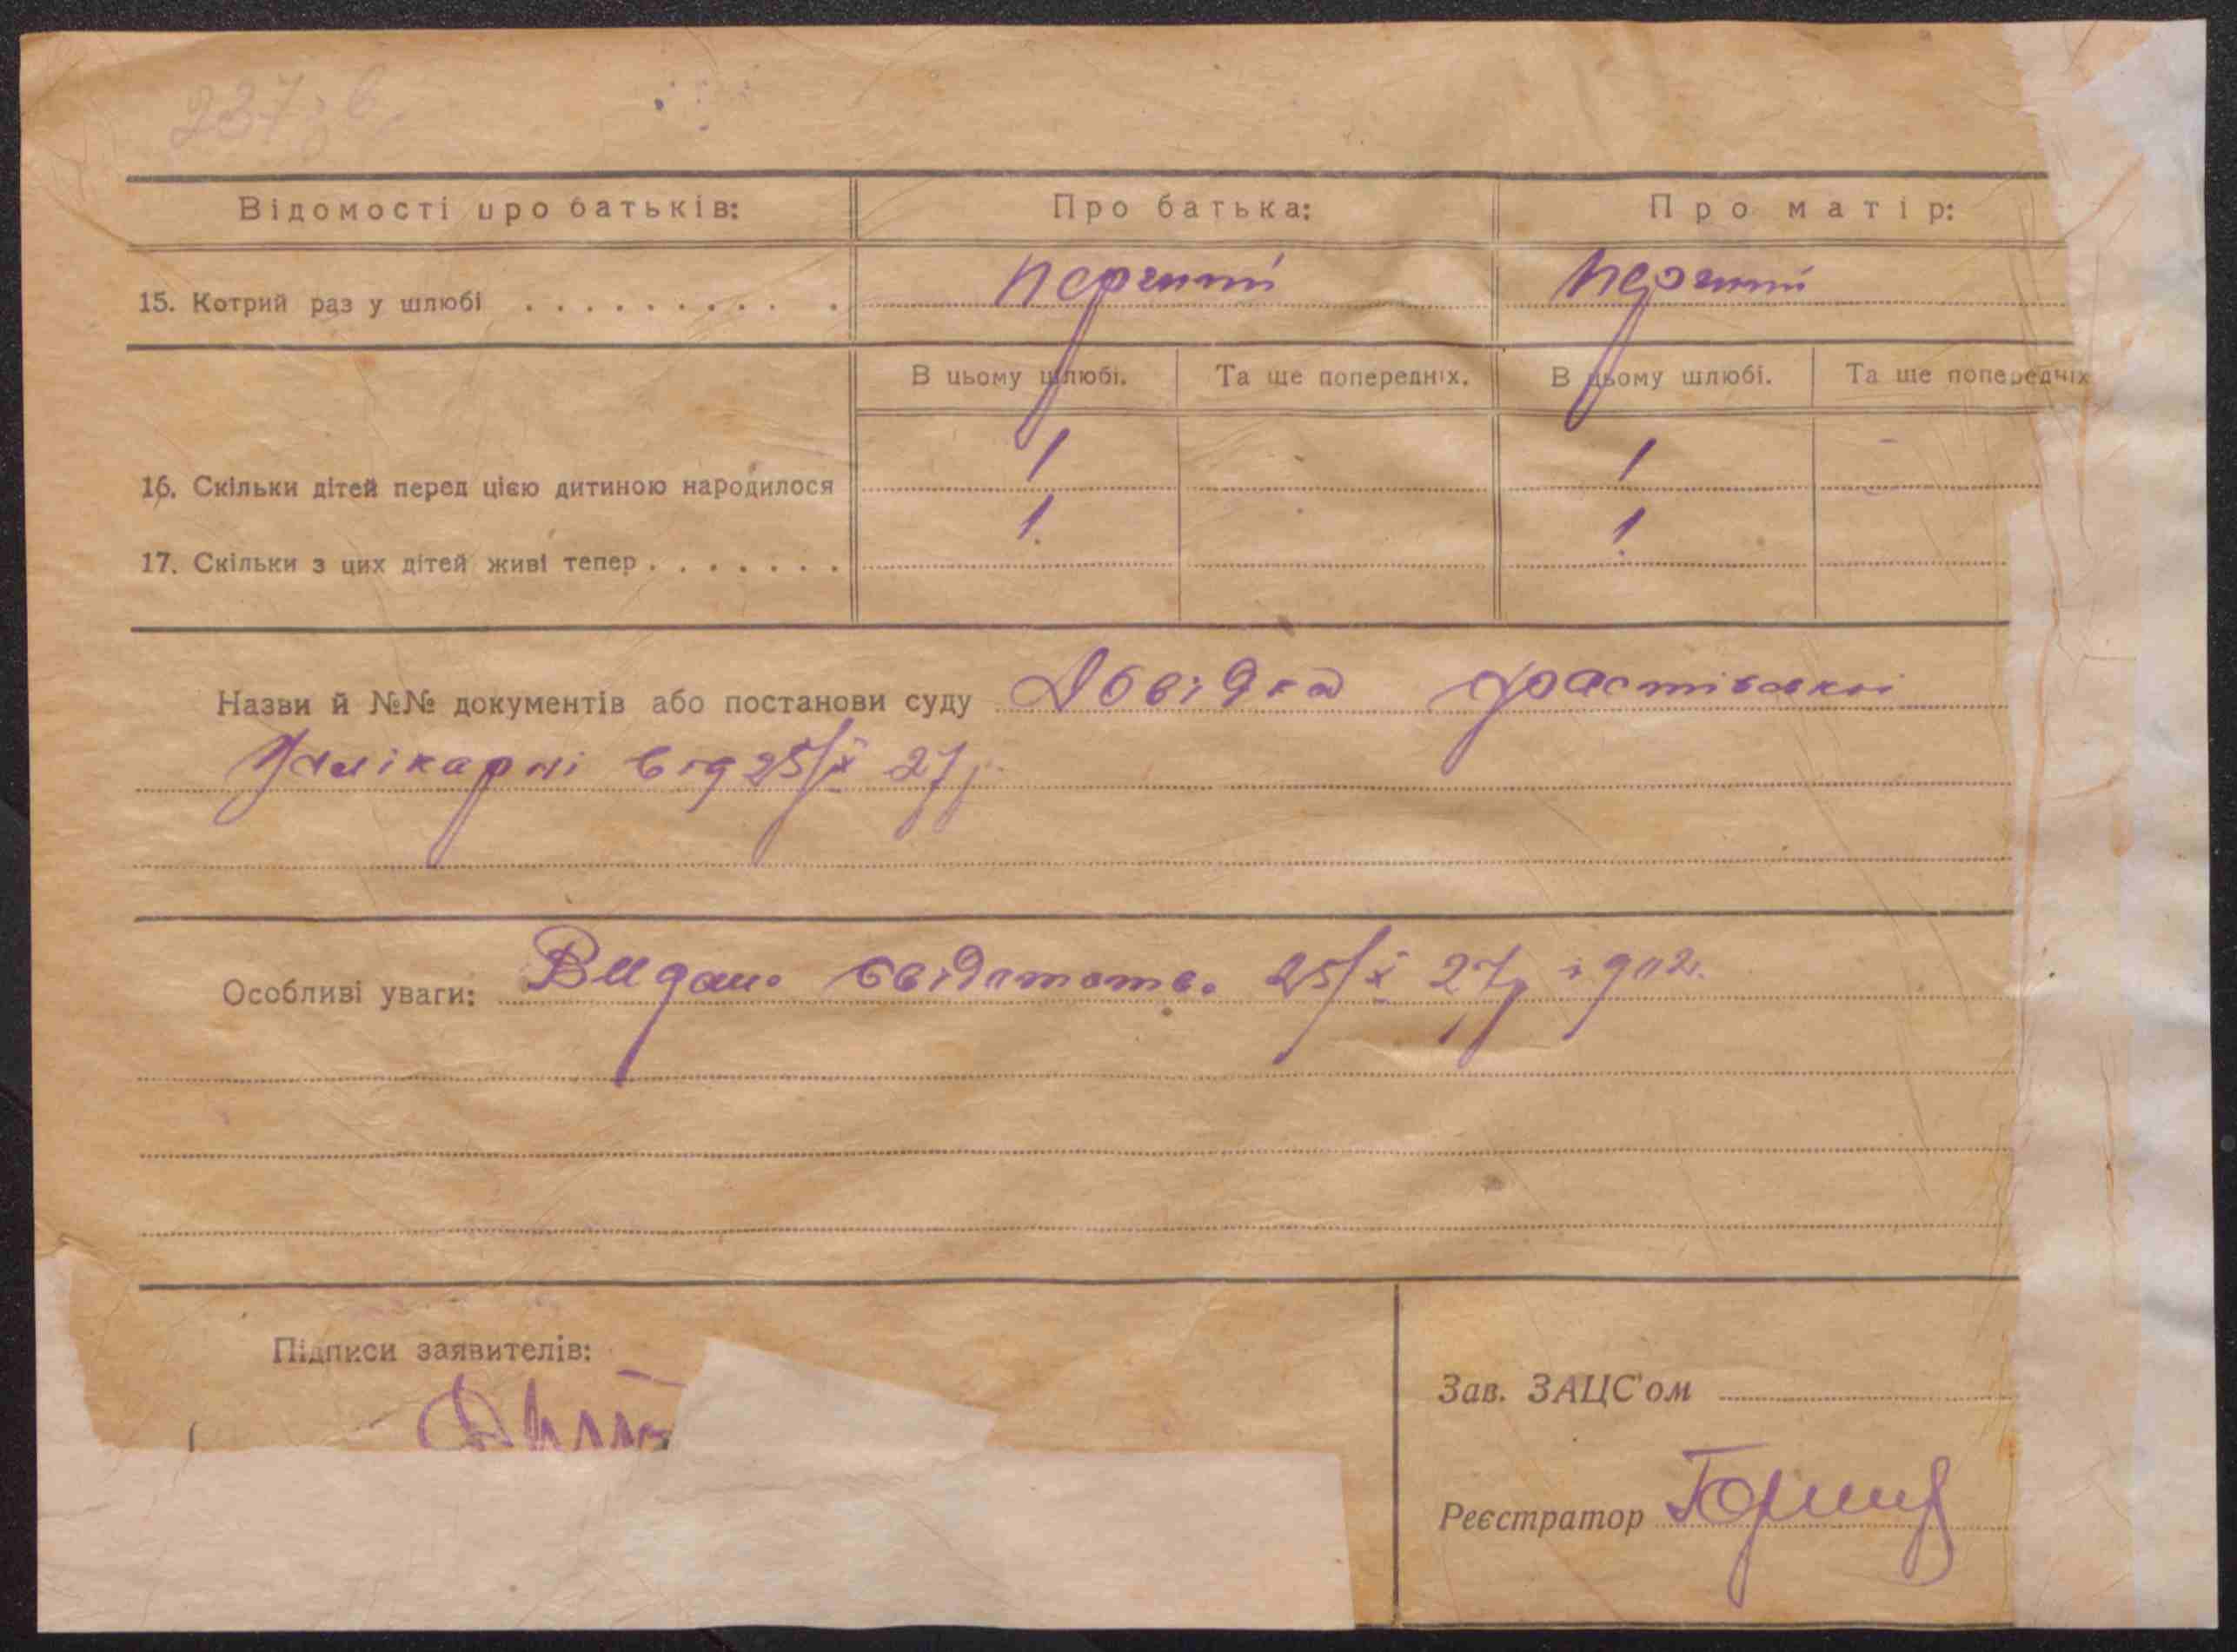 237
Відомості про батьків: Про батька: Про матір:
15. Котрий раз у шлюбі . . . . . . . . . . перший перший
В цьому шлюбі. Та ще попередніх. В цьому шлюбі. Та ще попередніх
16. Скільки дітей перед цією дитиною народилося 1 1 -
17. Скільки з цих дітей живі тепер . . . . . . . 1. 1.
Назви й №№ документів або постанови суду Довідка Фастівської
лікарні від 25/X 27 р.
Особливі уваги: Видано свідотство 25/X 27 р
Підписи заявителів:
Зав. ЗАЦС'ом
Реєстратор